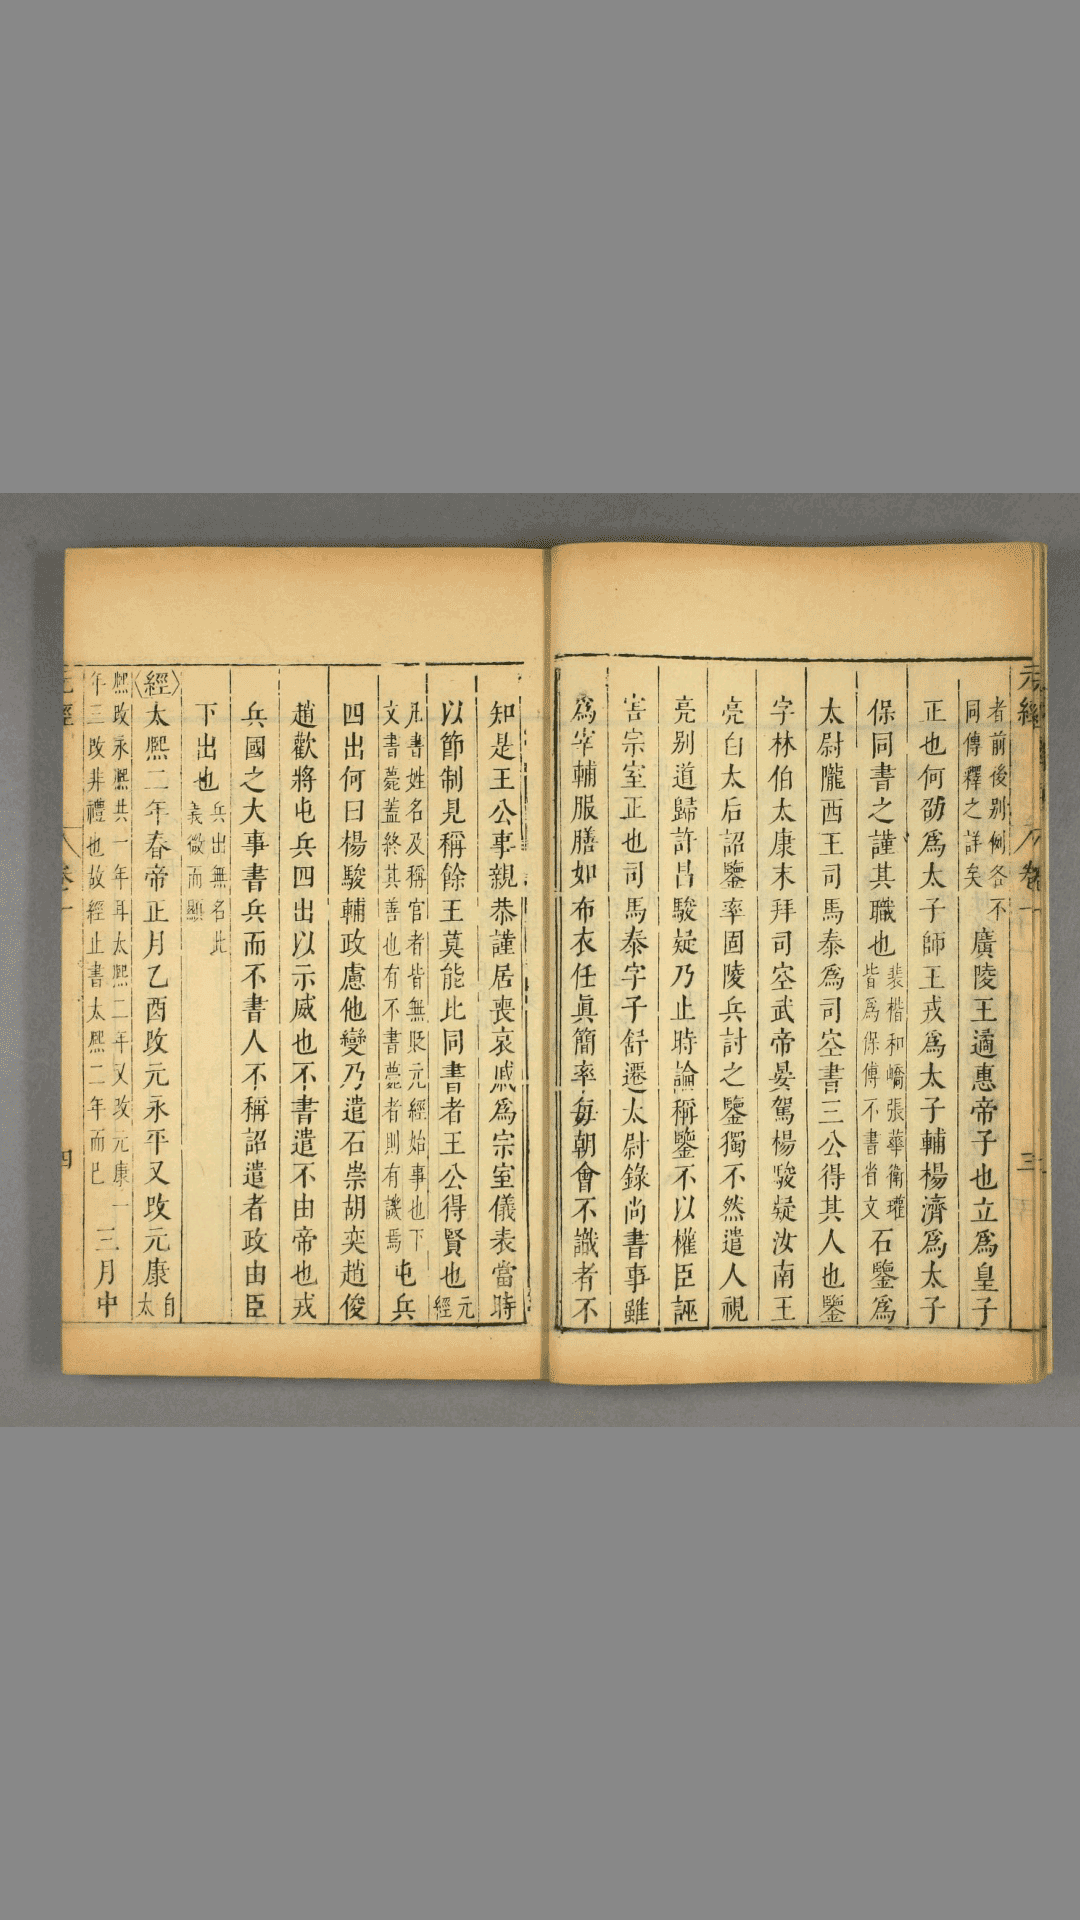 元經 卷十 三
者前後别例各不同傳釋之詳矣廣陵王遹惠帝子也立爲皇子
正也何劭爲太子師王戎爲太子輔楊濟爲太子
保同書之謹其職也裴楷和嶠張華衛瓘皆爲保傅不書省文石鑒爲
太尉隴西王司馬泰爲司空書三公得其人也鑒
字林伯太康末拜司空武帝晏駕楊駿疑汝南王
亮白太后詔鑒率固陵兵討之鑒獨不然遣人視
亮别道歸許昌駿疑乃止時論稱鑒不以權臣誣
害宗室正也司馬泰字子舒遷太尉錄尚書事雖
爲宰輔服膳如布衣任眞簡率每朝會不識者不
知是王公事親恭謹居喪哀戚爲宗室儀表當時
以節制見稱餘王莫能比同書者王公得賢也元經
凡書姓名及稱官者皆無貶元經始事也下文書薨蓋終其善也有不書薨者則有譏焉屯兵
四出何曰楊駿輔政慮他變乃遣石崇胡奕趙俊
趙歡將屯兵四出以示威也不書遣不由帝也戎
兵國之大事書兵而不書人不稱詔遣者政由臣
下出也兵出無名此義微而顯
〈經〉太熙二年春帝正月乙酉改元永平又改元康自太
熙改永熙共一年耳太熙二年又改元康一年三改非禮也故經止書太熙二年而已三月中
元經 卷十 四